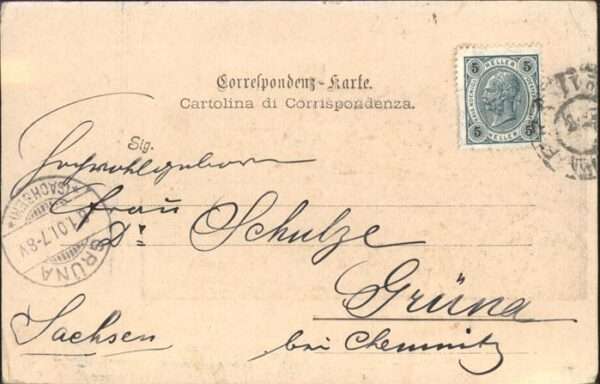 Correspondenz-Karte.
Cartolina di Corrispondenza.
5 HELLER 5
5 HELLER 5
Sig.
Hochwohlgeboren
Frau
Dr Schulze
Grüna
bei Chemnitz
Sachsen
GRÜNA
*(SACHSEN)*
1.01.7-8V